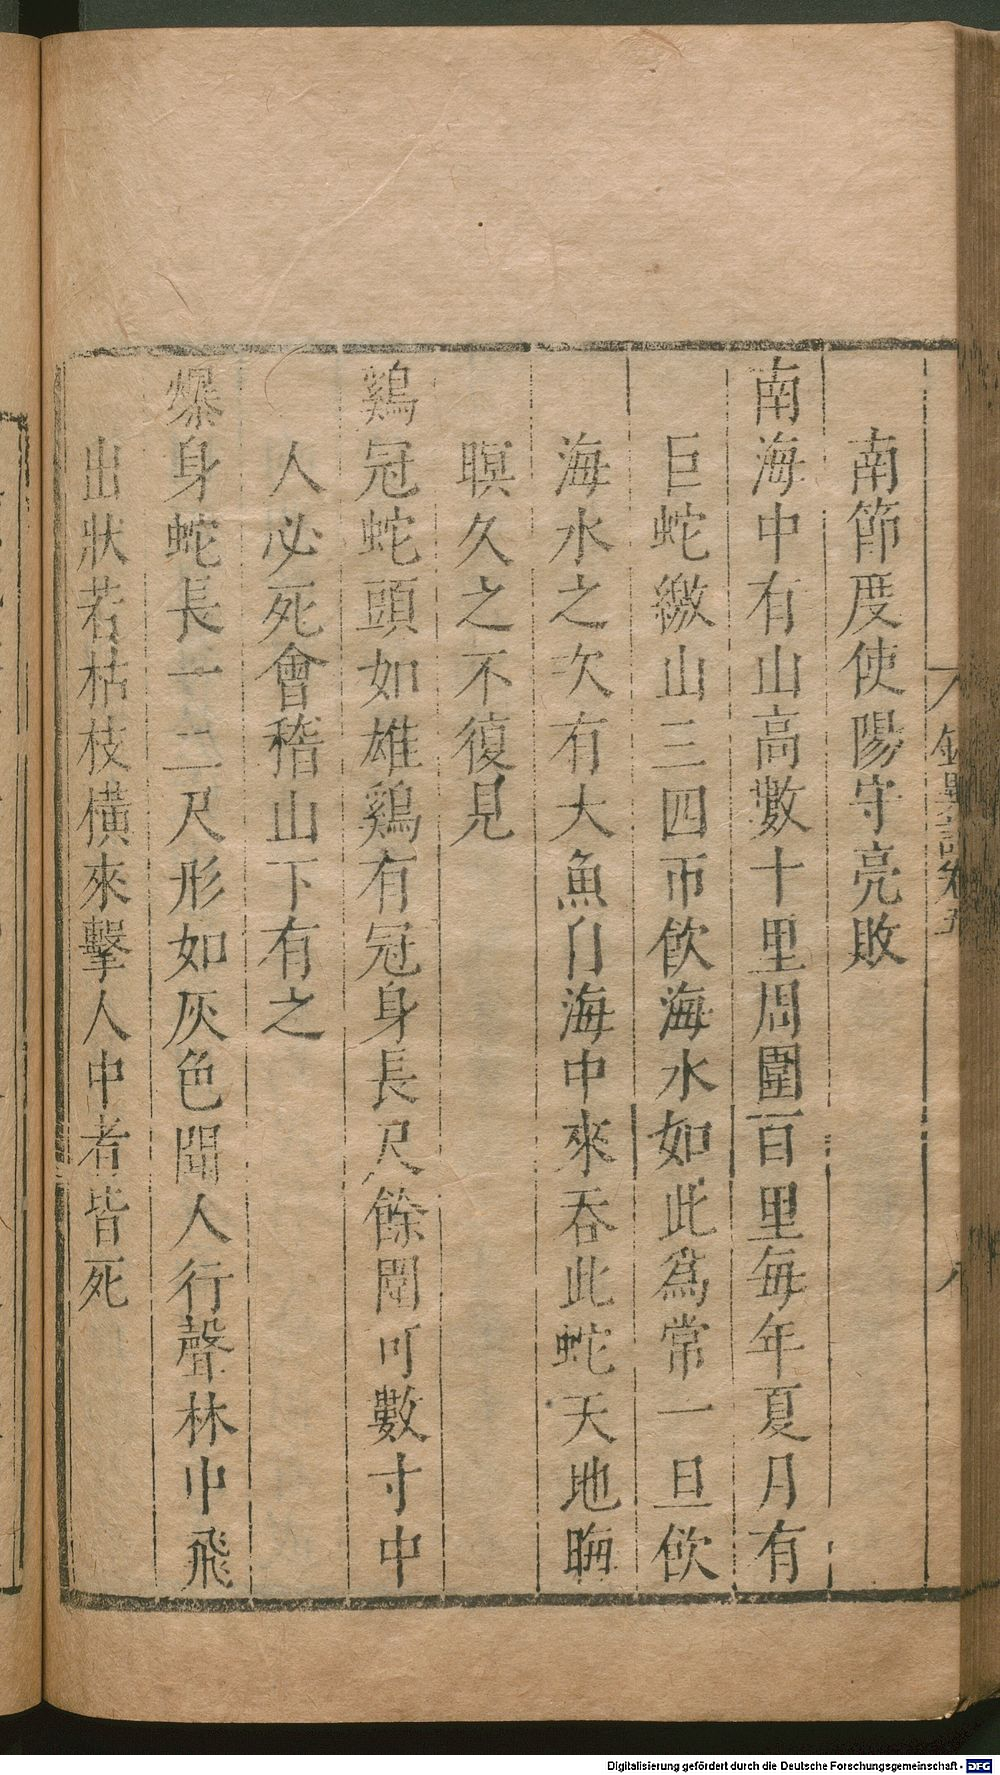 南節度使陽守亮敗
南海中有山高數十里周圍百里每年夏月有
巨蛇繳山三四帀飲海水如此爲常一旦飲
海水之次有大魚自海中來吞此蛇天地晦
暝久之不復見
鷄冠蛇頭如雄鷄有冠身長尺餘圍可數寸中
人必死會稽山下有之
爆身蛇長一二尺形如灰色聞人行聲林中飛
出狀若枯枝橫來擊人中者皆死
Digitalisierung gefördert durch die Deutsche Forschungsgemeinschaft - DFG